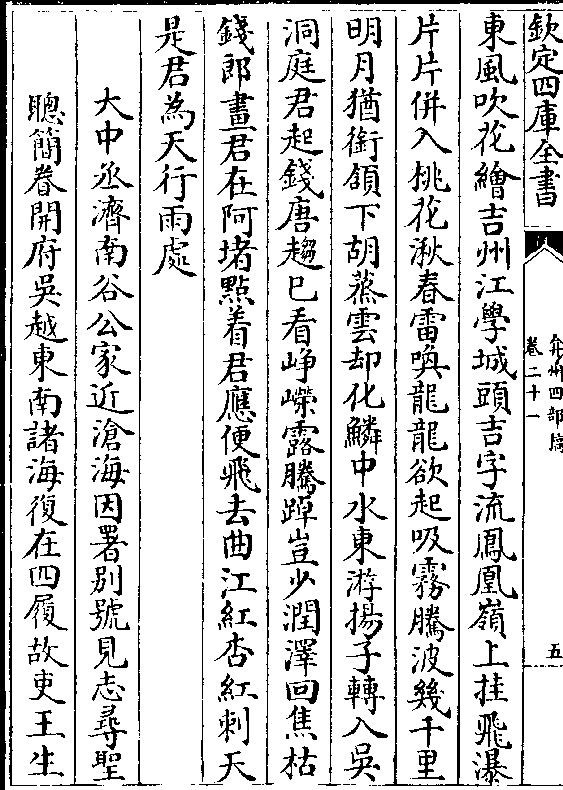 欽定四庫全書
弇州四部稿
卷二十一
五
東風吹花繪吉州江學城頭吉字流鳳凰嶺上挂飛瀑
片片併入桃花湫春雷喚龍龍欲起吸霧騰波幾千里
明月猶銜頷下胡蒸雲却化鱗中水東游揚子轉入吳
洞庭君起錢唐趨已看崢嶸露騰踔豈少潤澤回焦枯
錢郎畫君在阿堵點着君應便飛去曲江紅杏紅刺天
是君為天行雨處
大中丞濟南谷公家近滄海因署别號見志尋聖
聰簡眷開府吳越東南諸海復在四履故吏王生